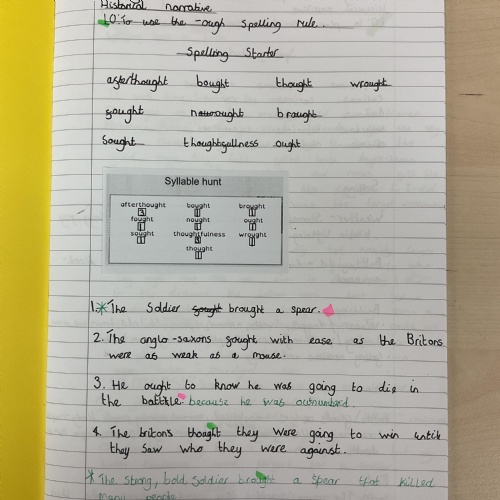 Historical narrative
LO: To use the -ough spelling rule.
Spelling Starter
afterthought bought thought wrought
fought nought brought
Sought thoughtfullness ought
Syllable hunt
afterthought bought brought
3 1 1
fought nought ought
1 1 1
sought thoughtfulness wrought
1 3 1
thought
1
1.* The Soldier fought brought a spear.
2. The anglo-saxons fought with ease as the Britons
were as weak as a mouse.
3. He ought to know he was going to die in
the battle. because he was outnumbard.
4. The britons thought they were going to win until
they saw who they were against.
* The strong, bold soldier brought a spear that killed
many people